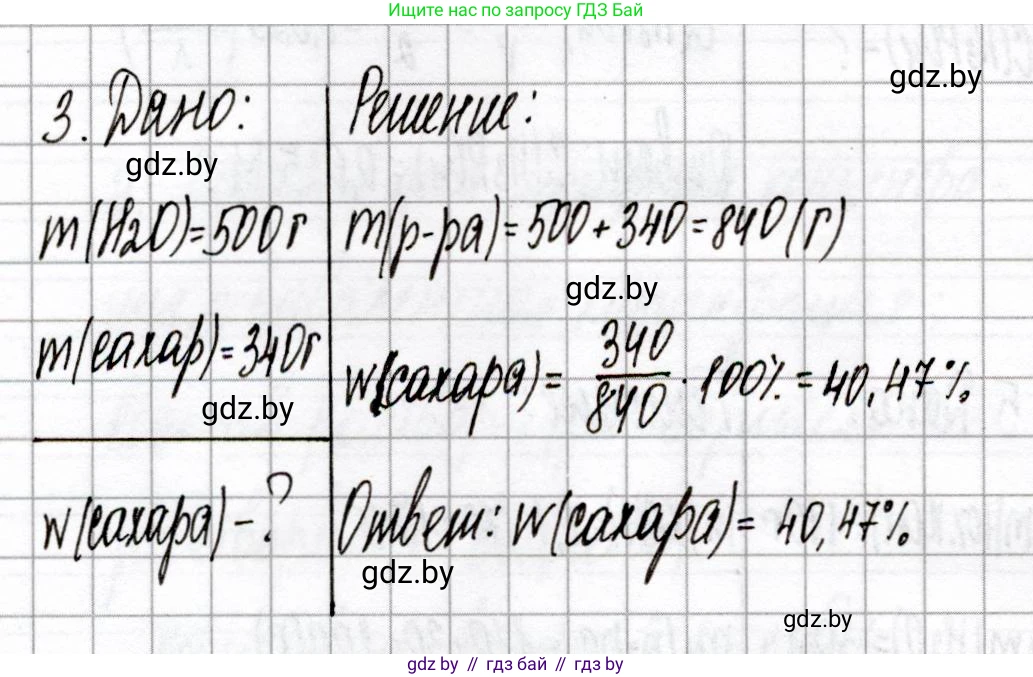 Ищите нас по запросу ГДЗ Бай
gdz.by
3. Дано:
Решение:
gdz.by
m(H2O)=500г
m(р-ра)=500+340=840(г)
gdz.by
m(сахар)=340г
w(сахара)= 340/840 · 100% = 40,47%
gdz.by
w(сахара) - ?
Ответ: w(сахара)= 40,47%
gdz.by
gdz.by
gdz by // гдз бай // гдз by